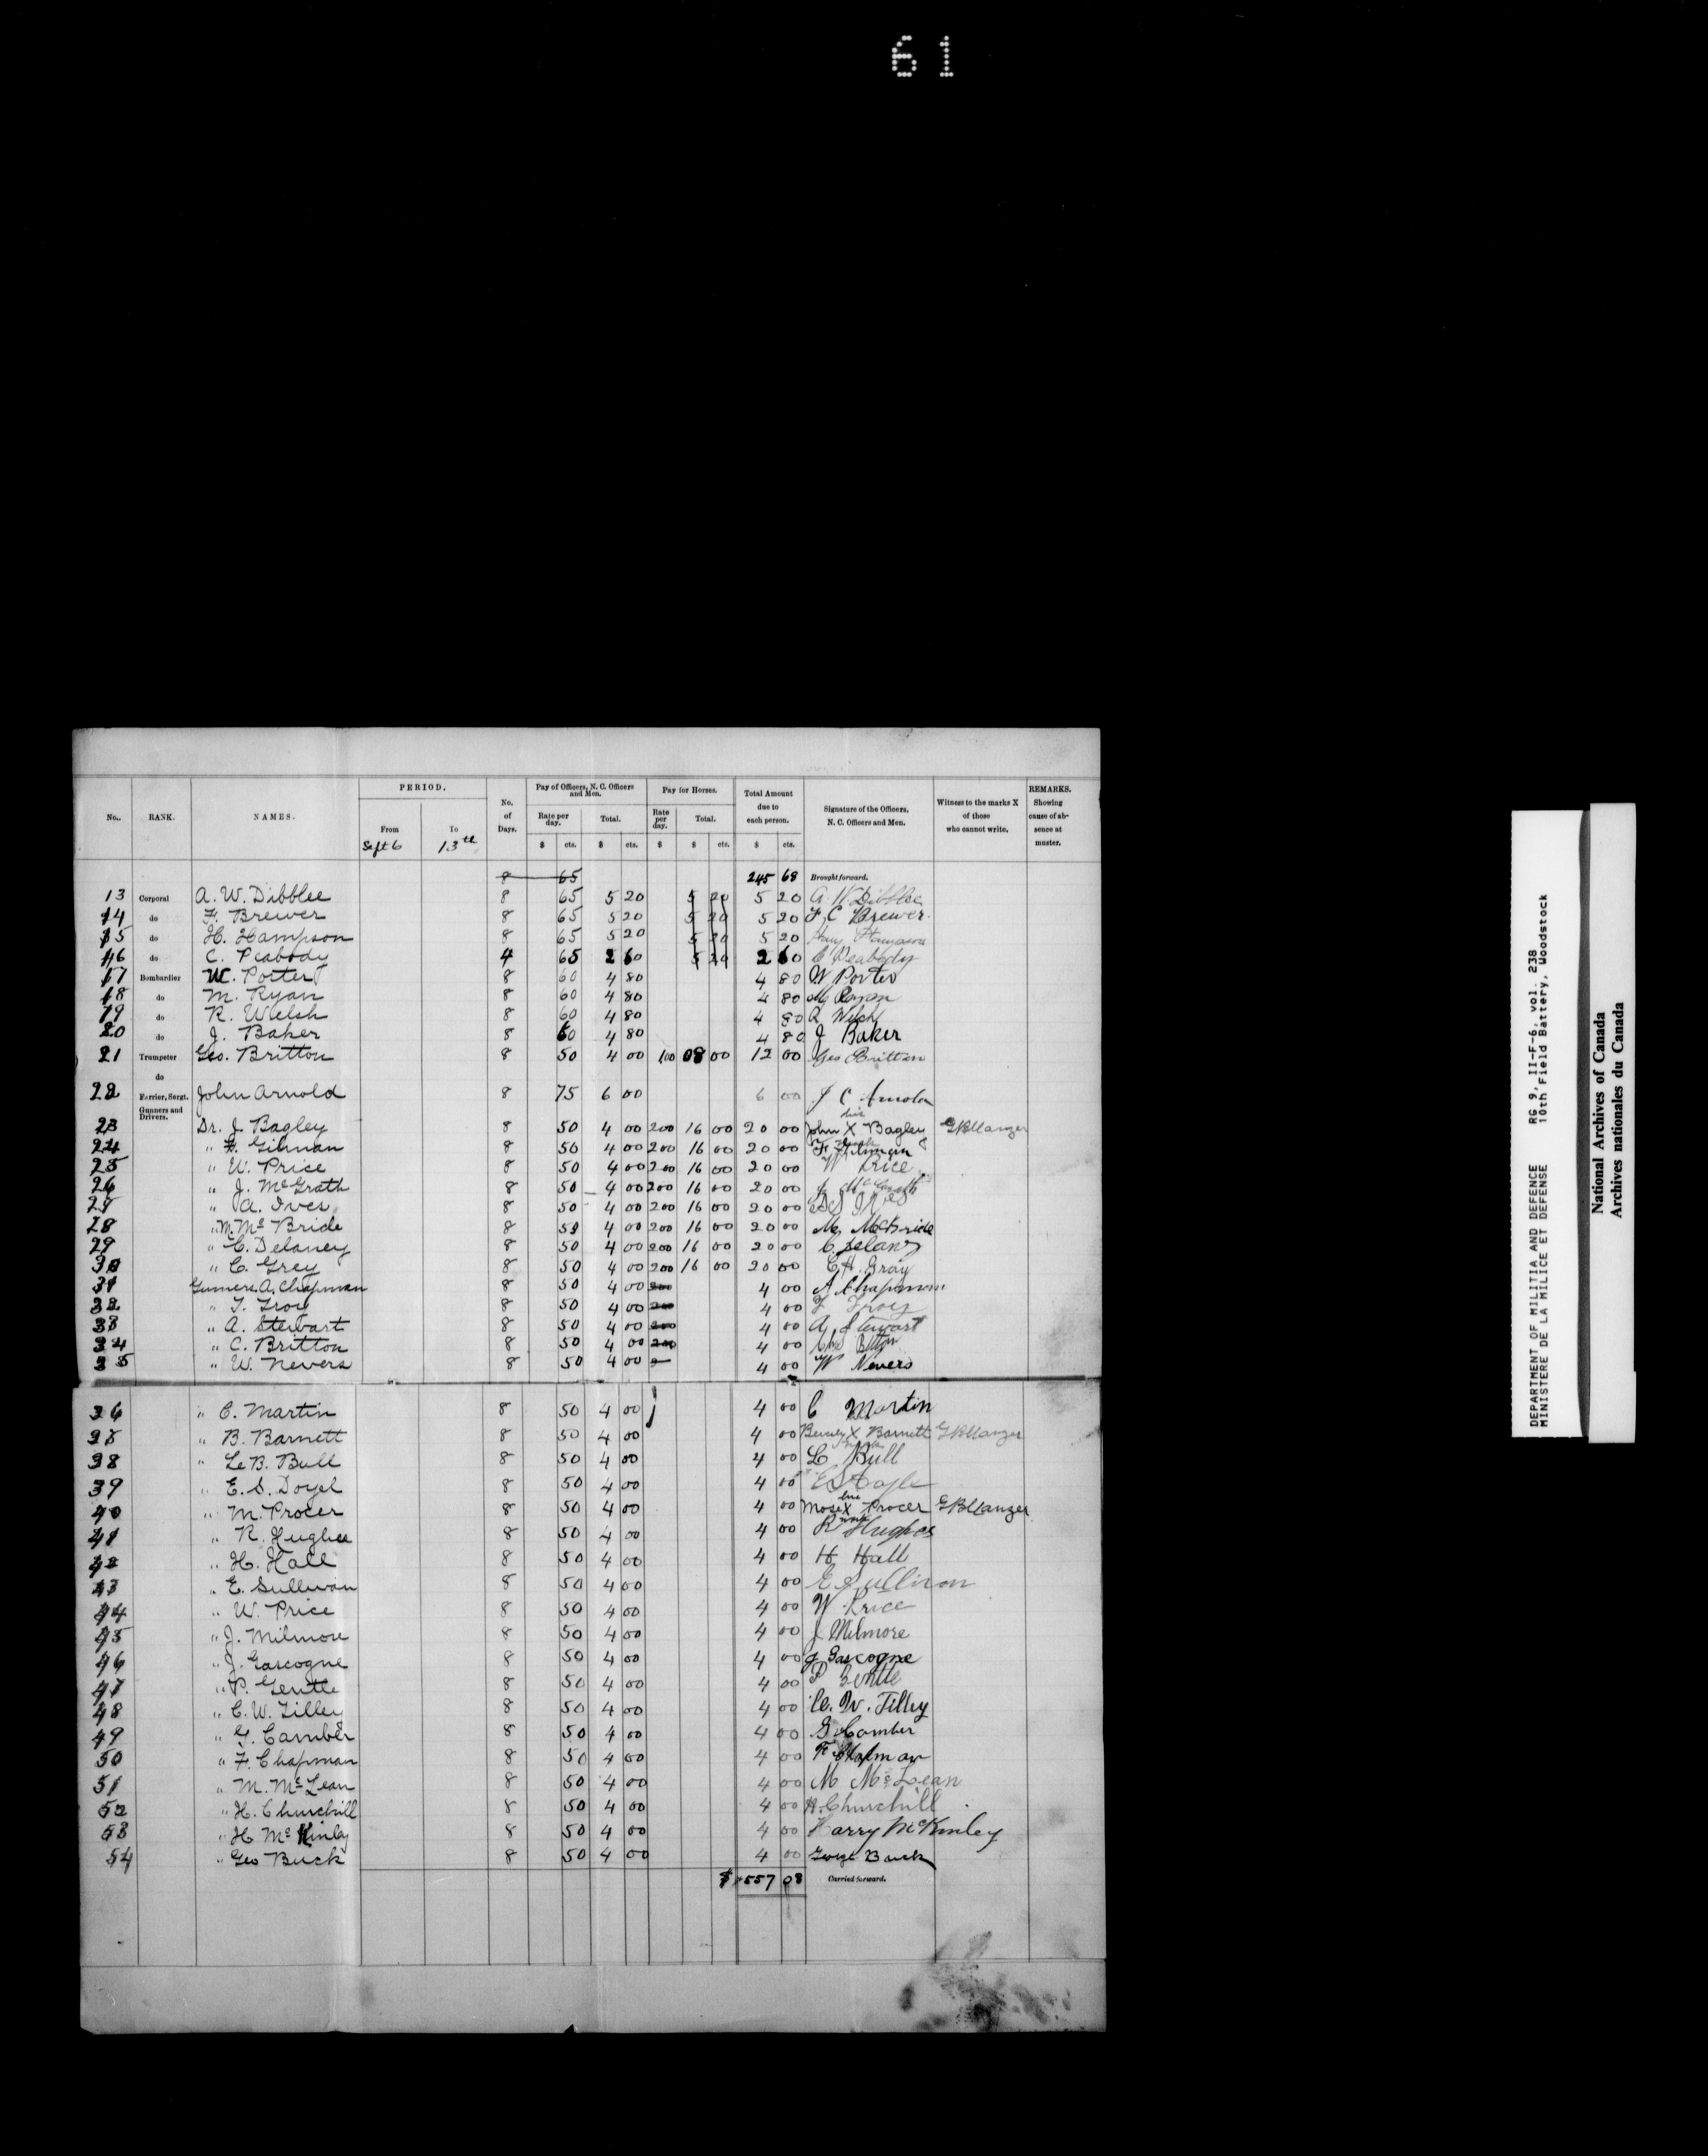 61
PERIOD.
No. RANK. NAMES. From To No. of Days. Pay of Officers, N. C. Officers and Men. Pay for Horses. Total Amount due to each person. Signature of the Officers, N. C. Officers and Men. Witness to the marks X of those who cannot write. REMARKS. Showing cause of absence at muster.
Rate per day. Total. Rate per day. Total.
Sept 6 13th $ cts. $ cts. $ $ cts. $ cts.
8 65 245 68 Brought forward.
13 Corporal A. W. Dibblee 8 65 5 20 5 20 5 20 A W Dibblee
14 do F. Brewer 8 65 5 20 5 20 5 20 F. C Brewer
15 do H. Hampson 8 65 5 20 5 20 5 20 Hampson
16 do C. Peabody 4 65 2 60 5 20 2 60 C Peabody
17 Bombardier W. Porter 8 60 4 80 4 80 W Porter
18 do M. Ryan 8 60 4 80 4 80 M Ryan
19 do R. Welsh 8 60 4 80 4 80 R Welsh
20 do J. Baker 8 60 4 80 4 80 J Baker
21 Trumpeter Geo. Britton 8 50 4 00 100 08 00 12 00 Geo Britton
do
22 Farrier, Sergt. John Arnold 8 75 6 00 6 00 J C Arnold
Gunners and Drivers.
23 Dr. J. Bagley 8 50 4 00 200 16 00 20 00 John his X mark Bagley
24 " F. Gilman 8 50 4 00 200 16 00 20 00 F Gilman
25 " W. Price 8 50 4 00 200 16 00 20 00 W Price
26 " J. McGrath 8 50 4 00 200 16 00 20 00 J McGrath
27 " A. Ives 8 50 4 00 200 16 00 20 00
28 " M. McBride 8 50 4 00 200 16 00 20 00 M. McBride
29 " C. Delaney 8 50 4 00 200 16 00 20 00 C Delany
30 " C. Grey 8 50 4 00 200 16 00 20 00 C H. Gray
31 Gunners A. Chapman 8 50 4 00 200 4 00 A Chapman
32 " T. Troy 8 50 4 00 200 4 00 T Troy
33 " A. Stewart 8 50 4 00 200 4 00 A Stewart
34 " C. Britton 8 50 4 00 200 4 00 Britton
35 " W. Nevers 8 50 4 00 4 00 W Nevers
36 " C. Martin 8 50 4 00 4 00 C Martin
37 " B. Barnett 8 50 4 00 4 00 X Barnett
38 " Le B. Bull 8 50 4 00 4 00 L Bull
39 " E. S. Doyel 8 50 4 00 4 00
40 " M. Procer 8 50 4 00 4 00 Mose his X mark Procer
41 " R. Hughes 8 50 4 00 4 00 R Hughes
42 " H. Hall 8 50 4 00 4 00 H Hall
43 " E. Sullivan 8 50 4 00 4 00 E Sullivan
44 " W. Price 8 50 4 00 4 00 W Price
45 " J. Milmore 8 50 4 00 4 00 J Milmore
46 " J. Gascogne 8 50 4 00 4 00 J Gascogne
47 " P. Gentle 8 50 4 00 4 00 P Gentle
48 " C. W. Tilley 8 50 4 00 4 00 C. W. Tilley
49 " G. Camber 8 50 4 00 4 00 G Comber
50 " F. Chapman 8 50 4 00 4 00 F Chapman
51 " M. McLean 8 50 4 00 4 00 M McLean
52 " H. Churchill 8 50 4 00 4 00 H. Churchill
53 " H McKinley 8 50 4 00 4 00 Harry McKinley
54 " Geo Buck 8 50 4 00 4 00 George Buck
$ 557 08 Carried forward.
DEPARTMENT OF MILITIA AND DEFENCE RG 9, II-F-6, vol. 238
MINISTERE DE LA MILICE ET DEFENSE 10th Field Battery, Woodstock
National Archives of Canada
Archives nationales du Canada